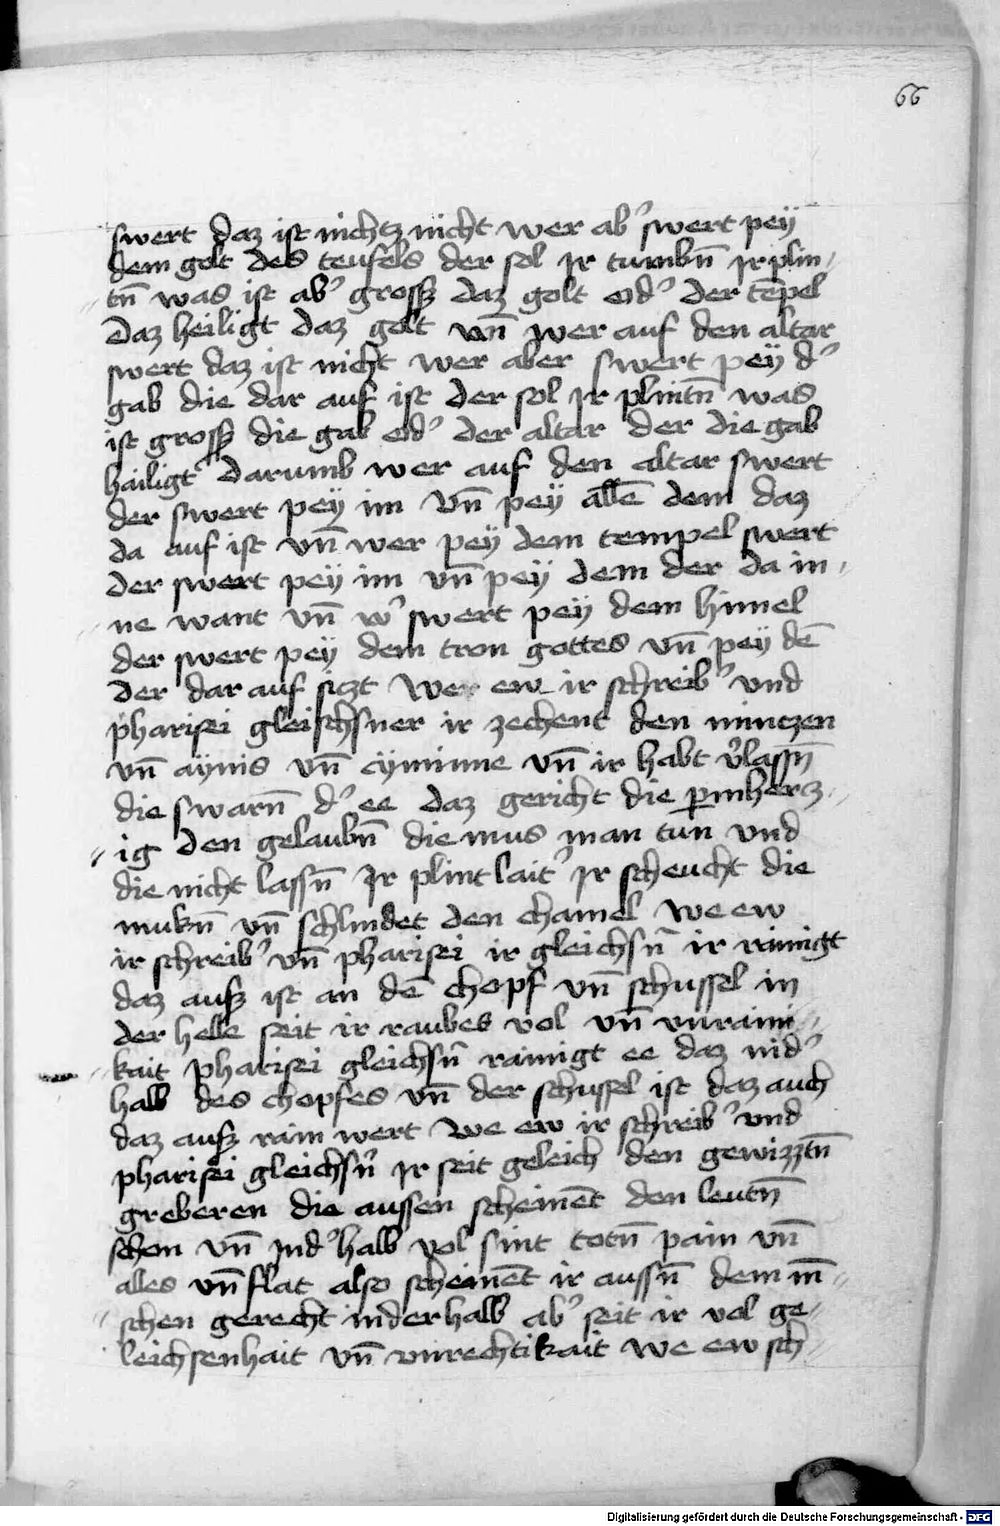 66
swert daz ist nichtz nicht wer ab' swert pey
dem golt des teufels der sol Ir tumbn̄ Ir plin„
tn̄ was ist ab' grossz daz golt od' der tēpel
Daz heiligt daz golt vn̄ wer auf den altar
swert daz ist nicht wer aber swert peÿ d'
gab die dar auf ist der sol Ir plintn̄ was
ist grossz die gab od' der altar der die gab
hailigt Darumb wer auf den altar swert
der swert peÿ im vn̄ peÿ allē dem daz
da auf ist vn̄ wer peÿ dem tempel swert
der swert peÿ im vn̄ peÿ dem der da in„
ne want vn̄ w' swert peÿ dem himel
der swert peÿ dem tron gottes vn̄ peÿ dē
der dar auf siczt Wer ew ir schreib' vnd
pharisei gleischsner ir zechent den mintzen
vn̄ aÿnis vn̄ cÿminne vn̄ ir habt v'lassn̄
die swarn̄ d' ee daz gericht die pmherz„
ig den gelaubn̄ die mus man tun vnd
die nicht lassn̄ Ir plint lait' Ir scheucht die
mukn̄ vn̄ schlindet den chamel We ew
ir schreib' vn̄ pharisei ir gleichsn̄' ir rainigt
daz aussz ist an dē chopf vn̄ schussel in
der helle seit ir raubes vol vn̄ vnraini„
kait Pharisei gleichsn̄' rainigt ee daz nid'
halb des chopfes vn̄ der schussel ist daz auch
daz aussz rain wert We ew ir schreib' vnd
pharisei gleichsn̄' Ir seit geleich den gewizztn̄
greberen die aussen scheinēt den leutn̄
schon vn̄ Ind'halb vol sint totn̄ pain vn̄
alles vn̄flat also scheinēt ir aussn̄ dem m̄„
schen gerecht inderhalb ab' seit ir vol ge„
leichsenhait vn̄ vnrechtikait we ew sch„
Digitalisierung gefördert durch die Deutsche Forschungsgemeinschaft - DFG